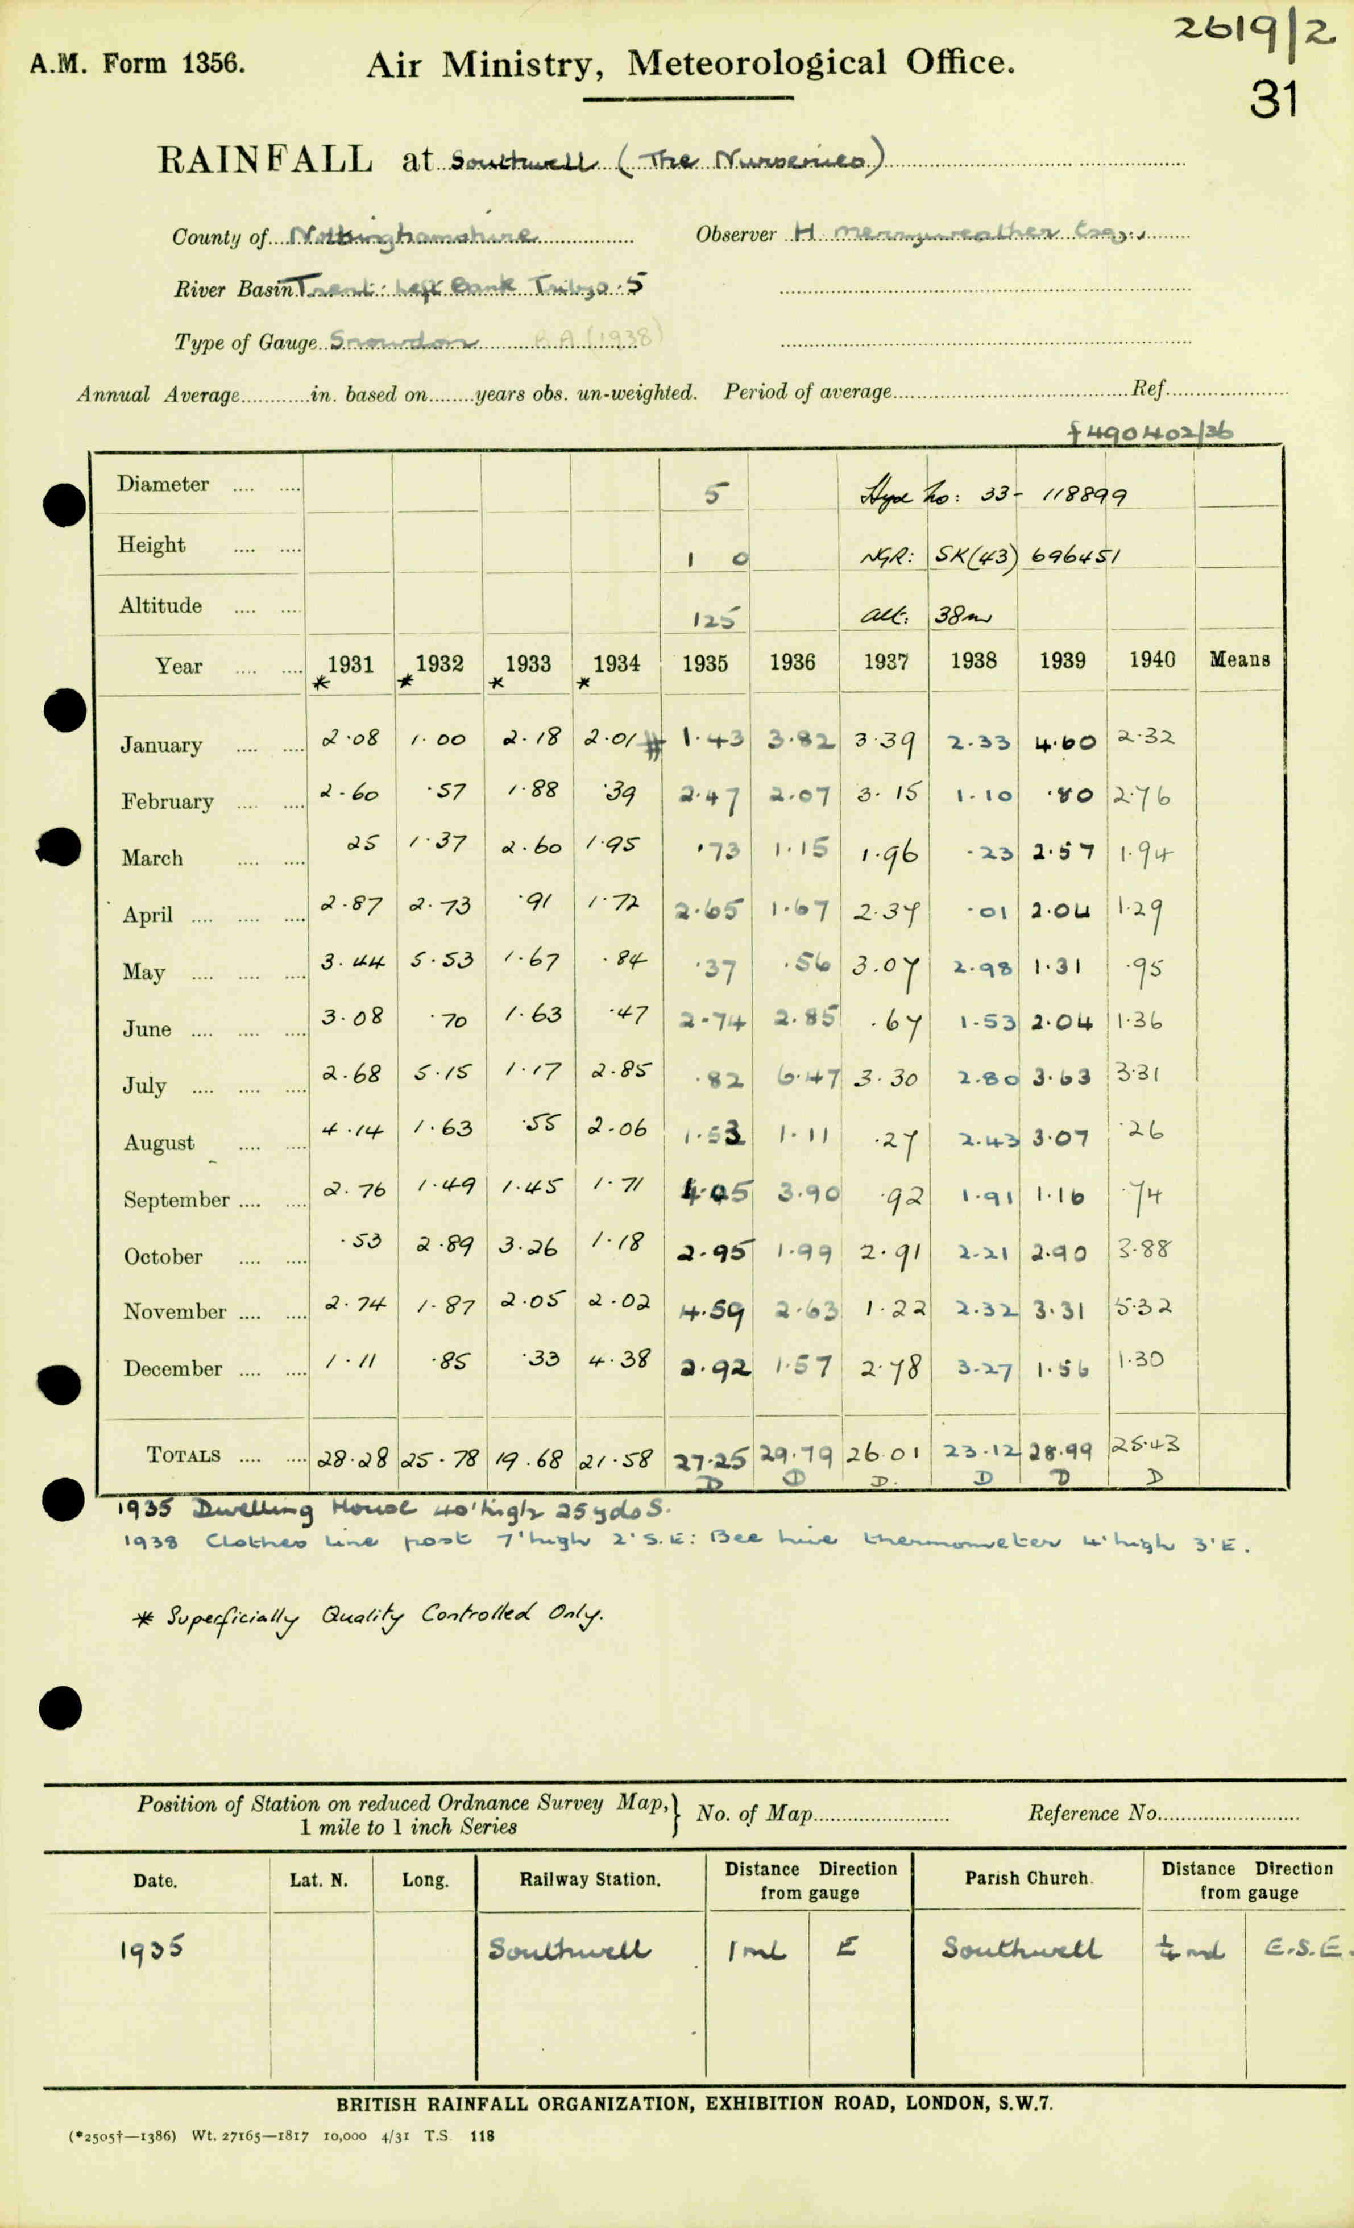 2619/2
A.M. Form 1356. Air Ministry, Meteorological Office.
31
RAINFALL at Southwell (The Nurseries)
County of Nottinghamshire Observer H Merryweather Esq.,
River Basin Trent: Left Bank Tribs. 5
Type of Gauge Snowdon (1938)
Annual Average in. based on years obs. un-weighted. Period of average Ref
f490402/36
Diameter 5 Hyd No: 33- 118899
Height 1 0 NGR: SK(43) 696451
Altitude 125 alt: 38m
Year 1931 1932 1933 1934 1935 1936 1937 1938 1939 1940 Means
* * * *
January 2.08 1.00 2.18 2.01 # 1.43 3.82 3.39 2.33 4.60 2.32
February 2.60 .57 1.88 .39 2.47 2.07 3.15 1.10 .80 2.76
March 25 1.37 2.60 1.95 .73 1.15 1.96 .23 2.57 1.94
April 2.87 2.73 .91 1.72 2.65 1.67 2.37 .01 2.04 1.29
May 3.44 5.53 1.67 .84 .37 .56 3.07 2.98 1.31 .95
June 3.08 .70 1.63 .47 2.74 2.85 .67 1.53 2.04 1.36
July 2.68 5.15 1.17 2.85 .82 6.47 3.30 2.80 3.63 3.31
August 4.14 1.63 .55 2.06 1.53 1.11 .27 2.43 3.07 .26
September 2.76 1.49 1.45 1.71 4.05 3.90 .92 1.91 1.16 .74
October .53 2.89 3.26 1.18 2.95 1.99 2.91 2.21 2.90 3.88
November 2.74 1.87 2.05 2.02 4.59 2.63 1.22 2.32 3.31 5.32
December 1.11 .85 .33 4.38 2.92 1.57 2.78 3.27 1.56 1.30
TOTALS 28.28 25.78 19.68 21.58 27.25 29.79 26.01 23.12 28.99 25.43
D D D. D D D
1935 Dwelling House 40' high 25 yds S.
1938 Clothes line post 7' high 2' S.E: Bee hive thermometer 4' high 3' E.
* Superficially Quality Controlled Only.
Position of Station on reduced Ordnance Survey Map, 1 mile to 1 inch Series } No. of Map Reference No.
Date. Lat. N. Long. Railway Station. Distance Direction from gauge Parish Church. Distance Direction from gauge
1935 Southwell 1 ml E Southwell ¼ ml E.S.E.
BRITISH RAINFALL ORGANIZATION, EXHIBITION ROAD, LONDON, S.W.7.
(*2505†—1386) Wt. 27165—1817 10,000 4/31 T.S. 118